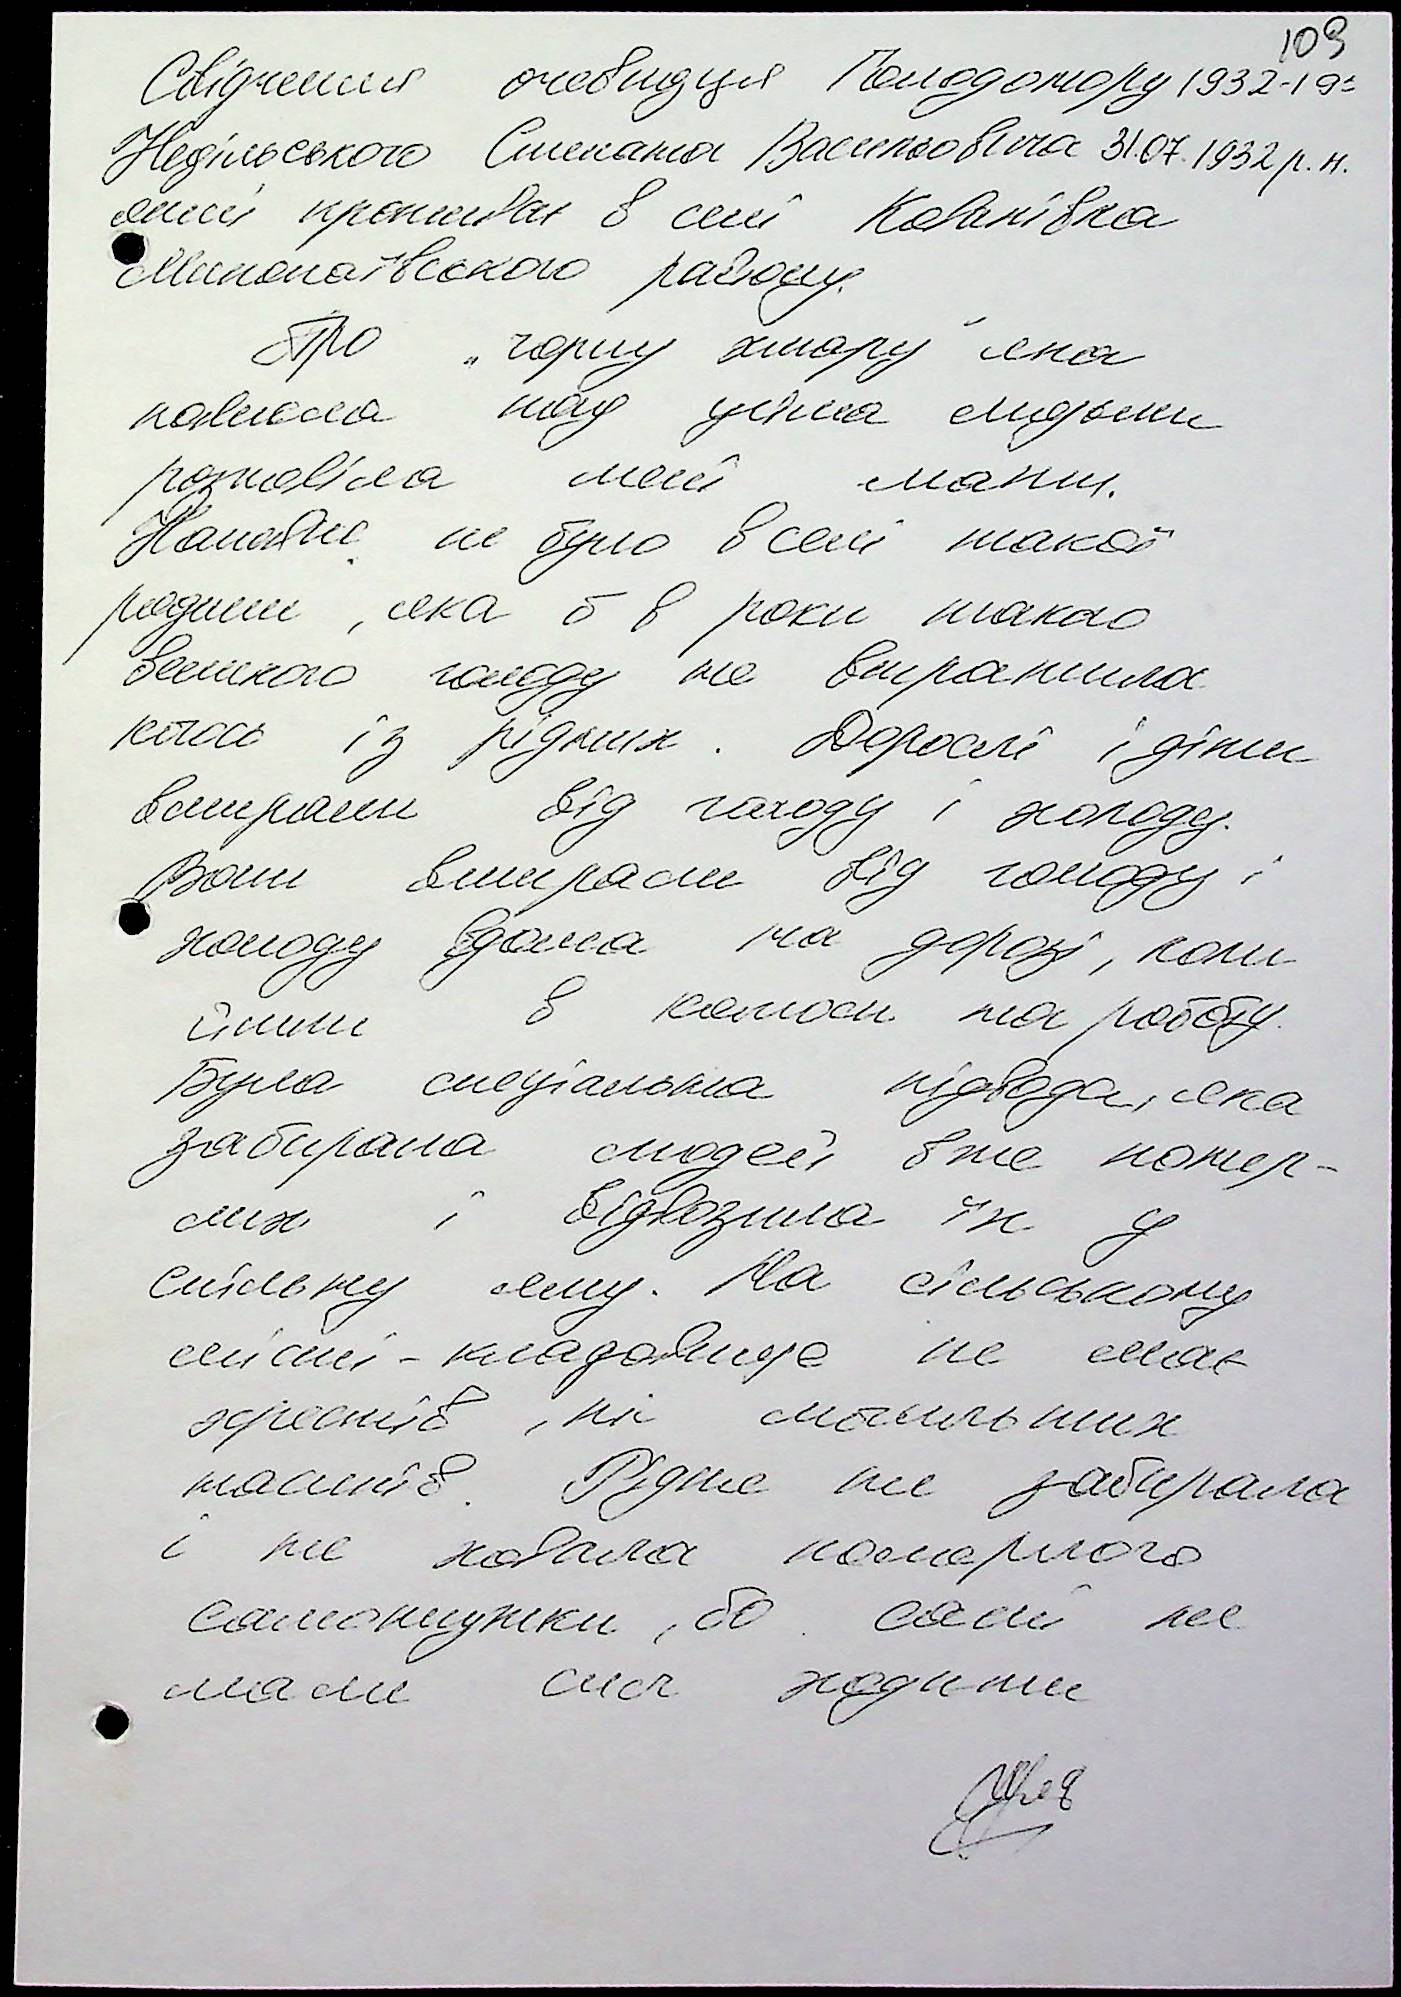 109
Свідчення очевидця Голодомору 1932-19
Недільського Степана Васильовича 31.07.1932 р.н.
який проживає в селі Кованівка
района.
Про „чорну хмару" яка
нависла над усіма людьми
розповіла мені мати.
Напевне не було в селі такої
родини, яка б в роки такого
великого голоду не втратила
когось із рідних. Дорослі і діти
вмирали від голоду і холоду.
Вони вмирали від голоду і
холоду вдома на дорозі, коли
йшли в колгосп на роботу.
Була спеціальна підвода, яка
забирала людей вже помер-
лих і відвозила їх у
спільну яму. На сільському
місці-кладовище не має
хрестів, ні могильних
написів. Рідне не забирала
і не ховала померлого
самотужки, бо самі не
мали сил ходити